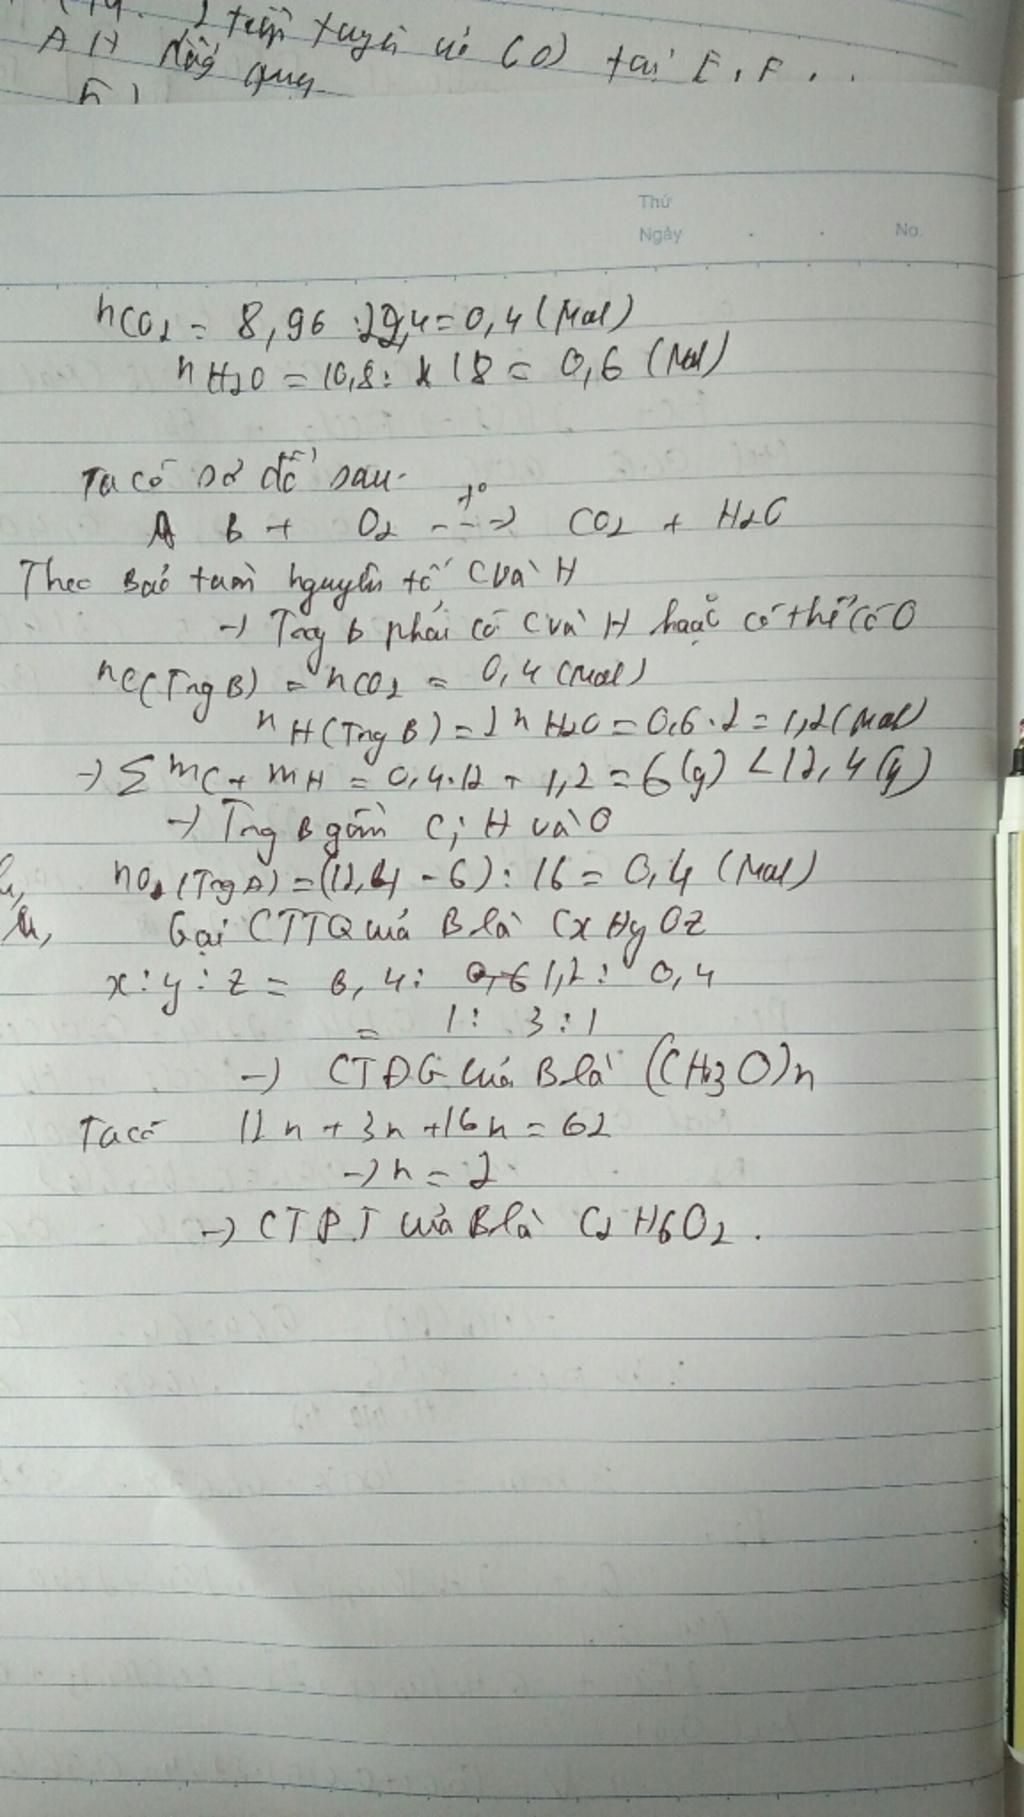 2 tiếp tuyến của (O) tại E, F.
AH đồng quy
Thứ
Ngày No.
nCO2 = 8,96 : 22,4 = 0,4 (Mol)
nH2O = 10,8 : 18 = 0,6 (Mol)
Ta có sơ đồ sau.
B + O2 ---> t° CO2 + H2O
Theo Bảo toàn nguyên tố C và H
→ Trog B phải có C và H hoặc có thể có O
nC(Trng B) = nCO2 = 0,4 (Mol)
nH(Trng B) = 2nH2O = 0,6.2 = 1,2 (Mol)
→ Σ mC + mH = 0,4.12 + 1,2 = 6 (g) < 12,4 (g)
→ Trng B gồm C, H và O
nO2 (Trng A) = (12,4 - 6) : 16 = 0,4 (Mol)
Gọi CTTQ của B là CxHyOz
x : y : z = 0,4 : 1,2 : 0,4
= 1 : 3 : 1
→ CTĐG của B là (CH3O)n
Ta có 12n + 3n + 16n = 62
→ n = 2
→ CTPT của B là C2H6O2.